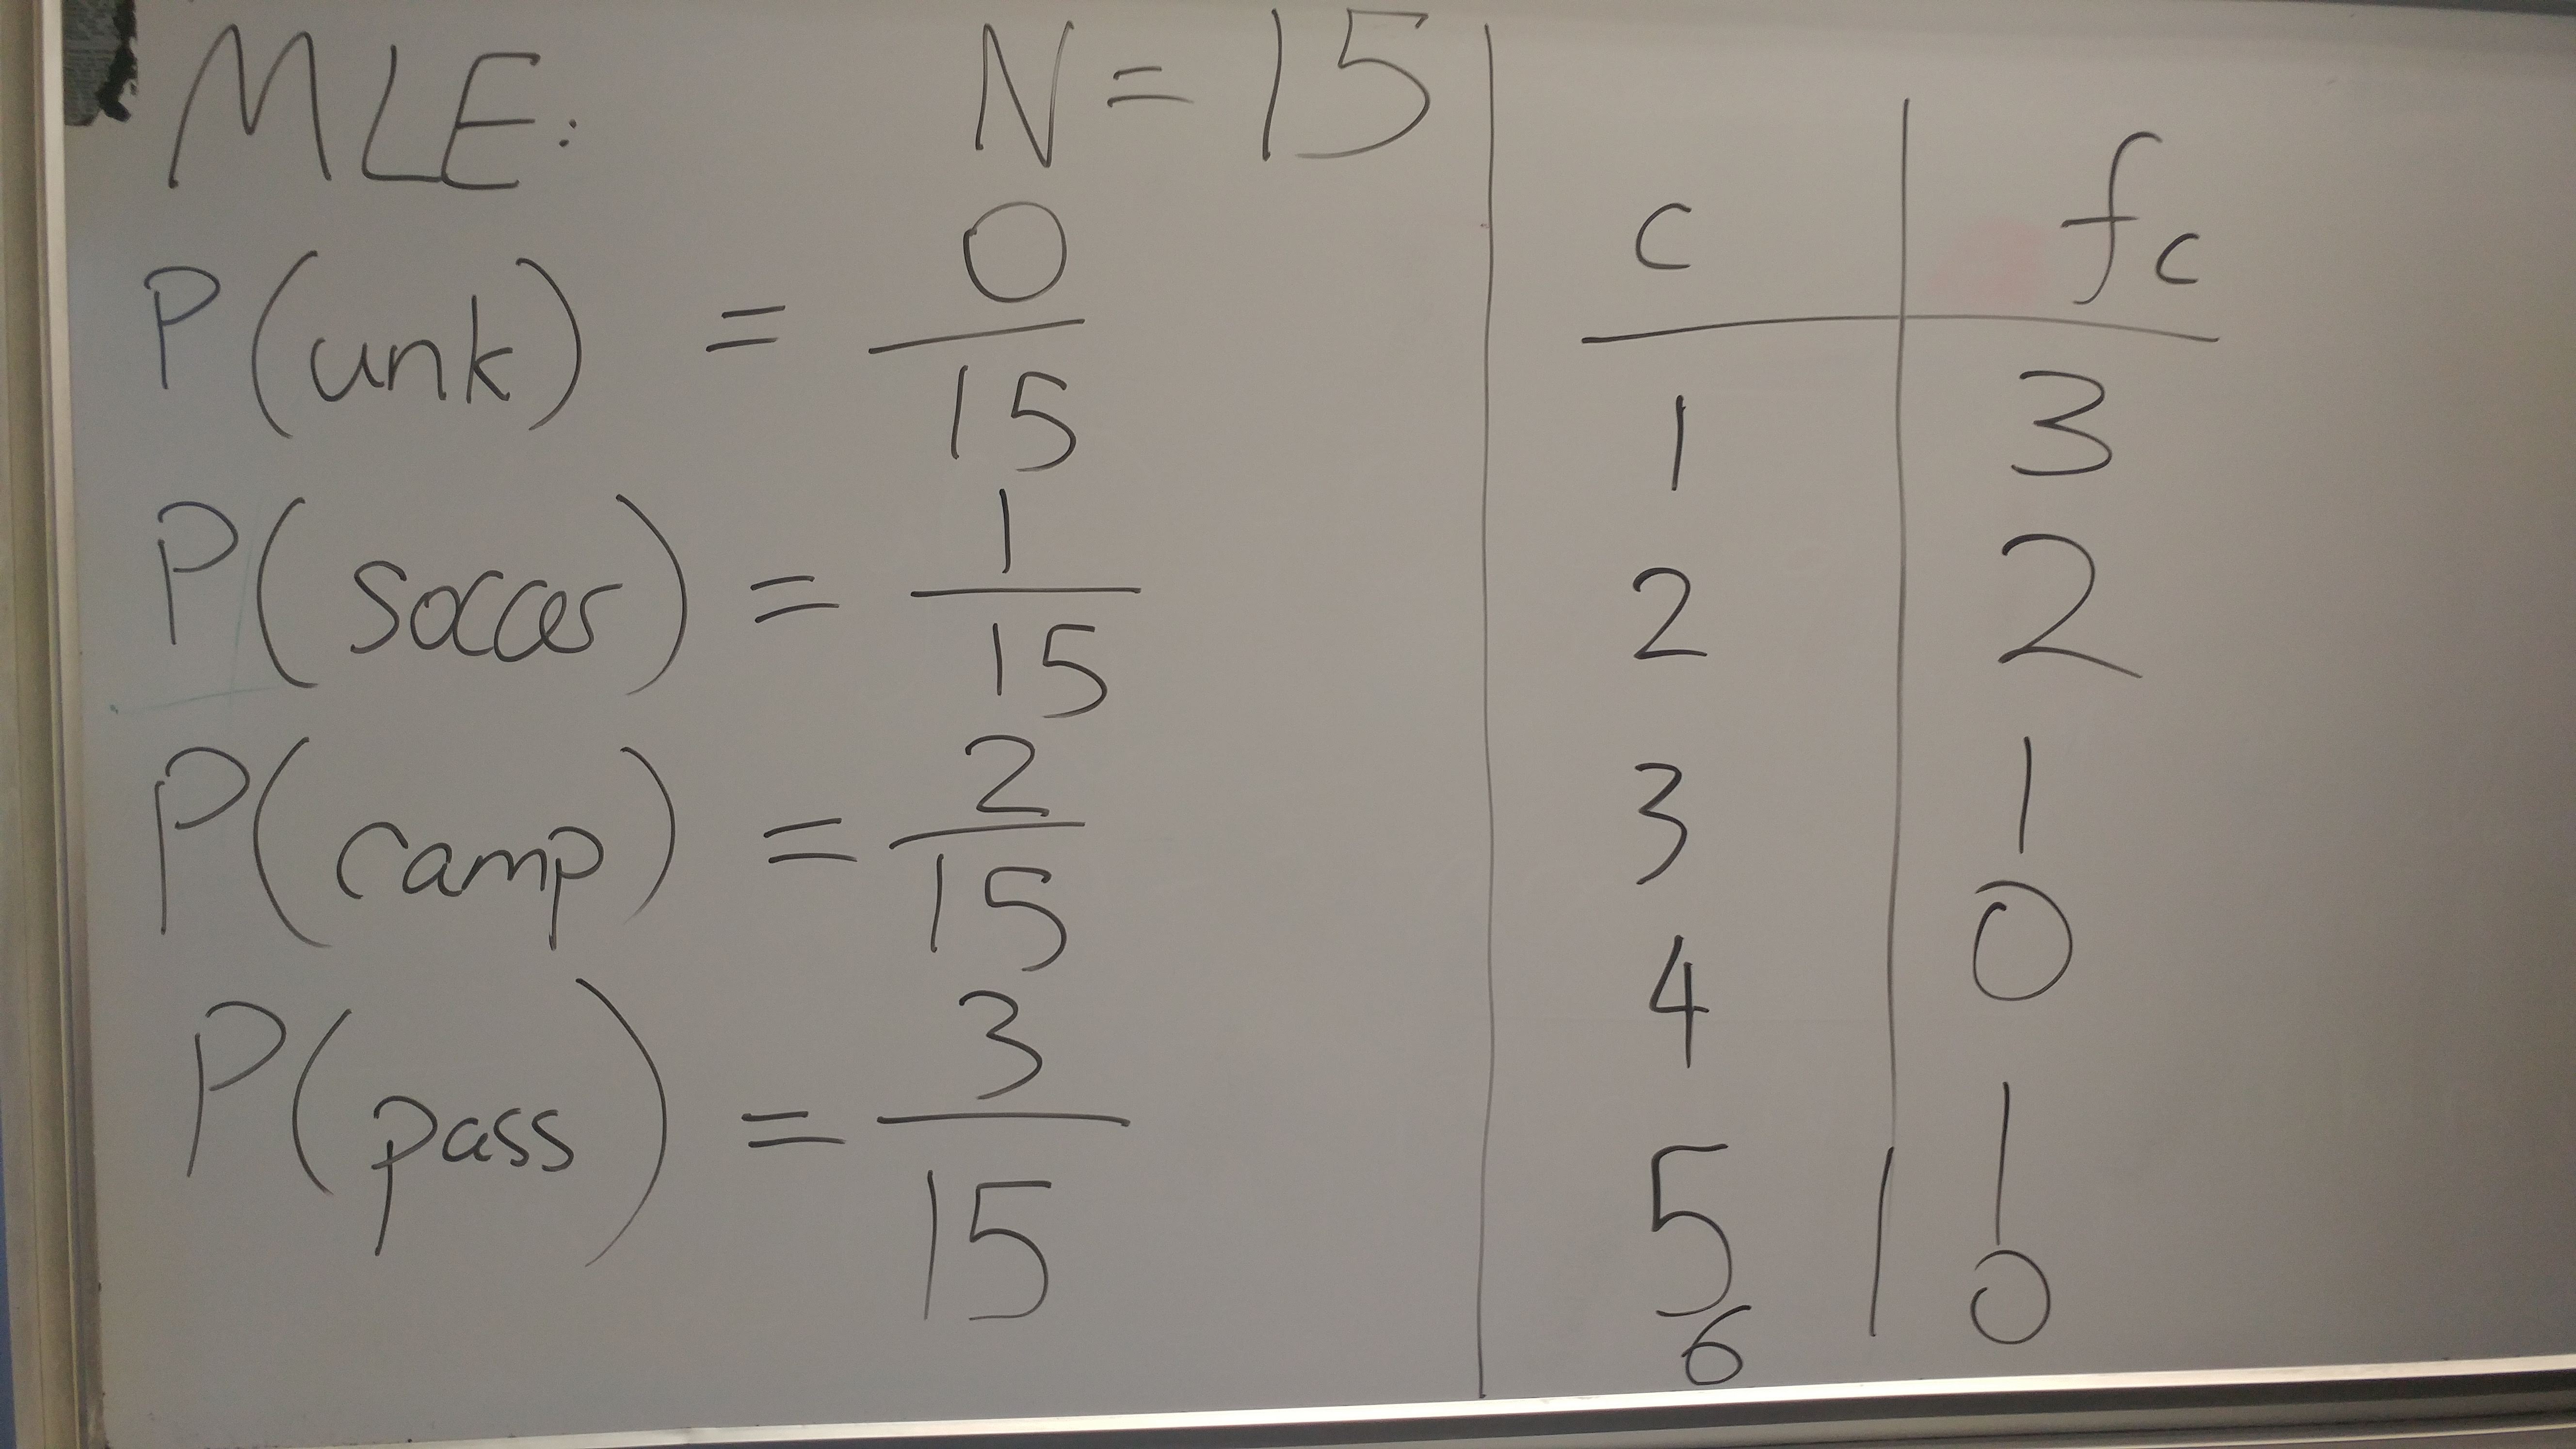 MLE: N = 15
P(unk) = 0/15
P(soccer) = 1/15
P(camp) = 2/15
P(pass) = 3/15
c fc
1 3
2 2
3 1
4 0
5 1
6 0